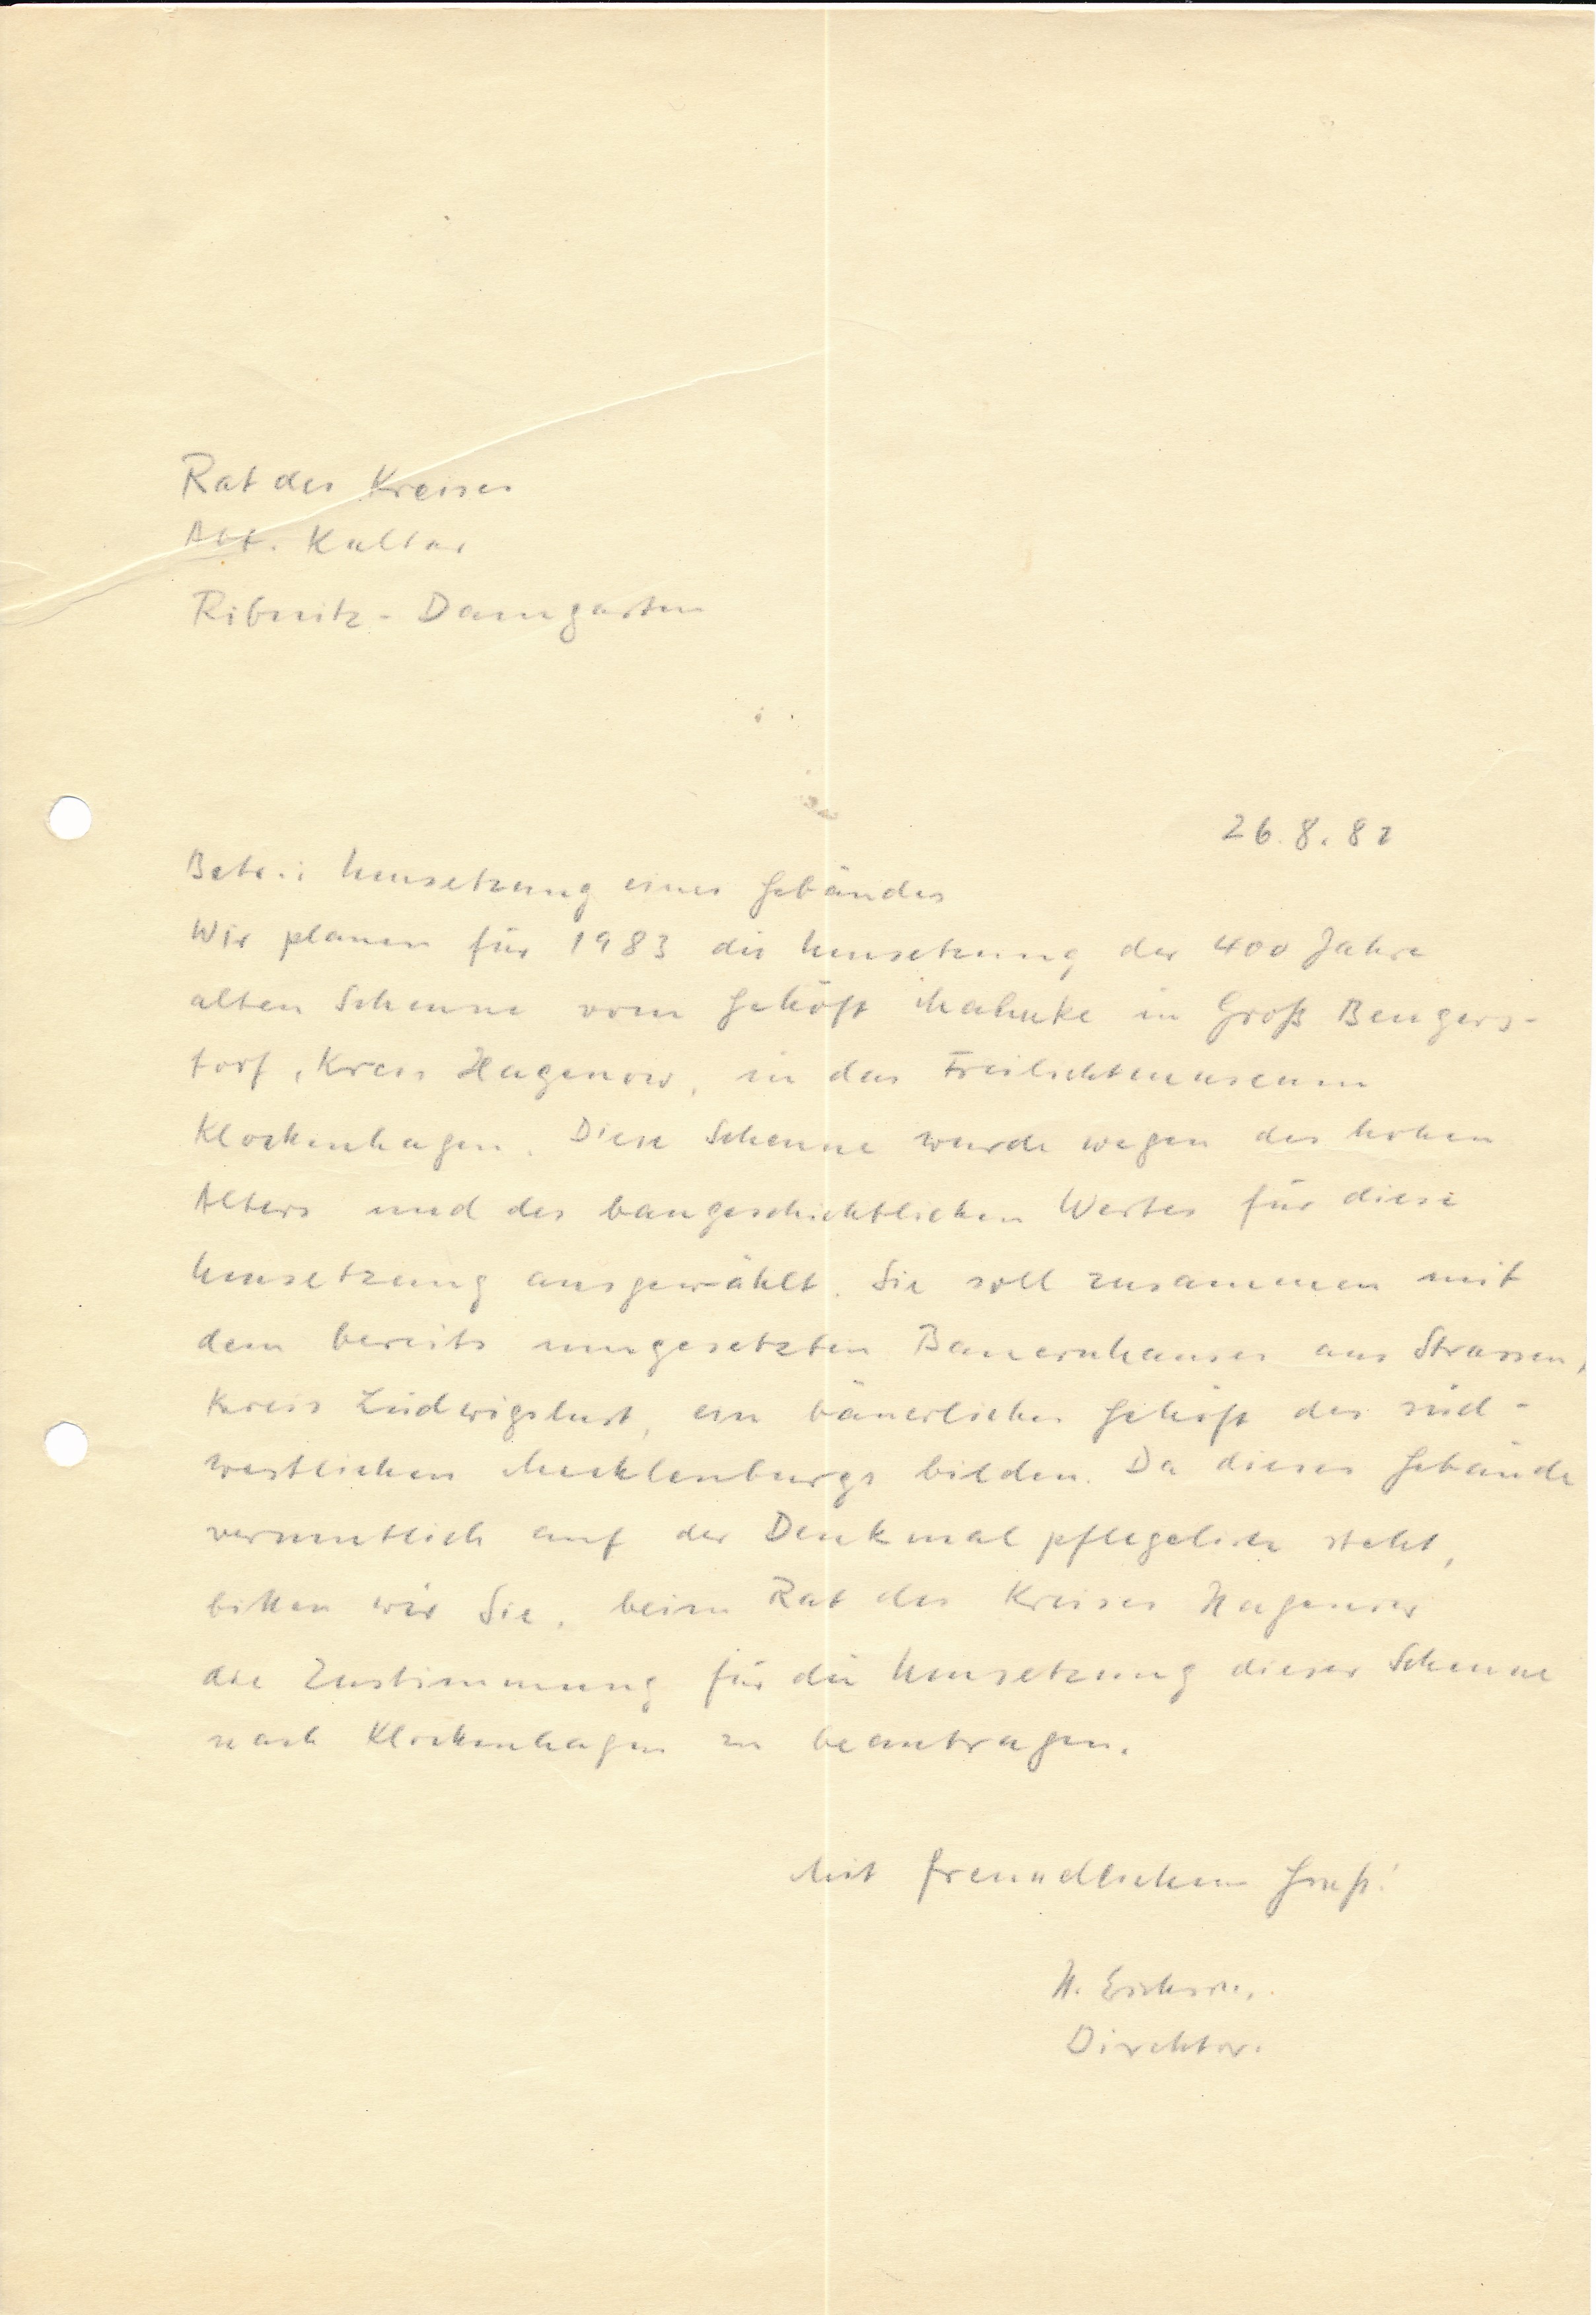 Rat des Kreises
Abt. Kultur
Ribnitz-Damgarten
26.8.82
Betr.: Umsetzung eines Gebäudes
Wir planen für 1983 die Umsetzung der 400 Jahre
alten Scheune vom Gehöft Mahnke in Groß Bengers-
torf, Kreis Hagenow, in das Freilichtmuseum
Klockenhagen. Diese Scheune wurde wegen des hohen
Alters und des baugeschichtlichen Wertes für diese
Umsetzung ausgewählt. Sie soll zusammen mit
dem bereits umgesetzten Bauernhauses aus Strassen,
Kreis Ludwigslust, ein bäuerliches Gehöft des süd-
westlichen Mecklenburgs bilden. Da dieses Gebäude
vermutlich auf der Denkmalpflegeliste steht,
bitten wir Sie, beim Rat des Kreises Hagenow
die Zustimmung für die Umsetzung dieser Scheune
nach Klockenhagen zu beantragen.
Mit freundlichem Gruß!
Direktor.